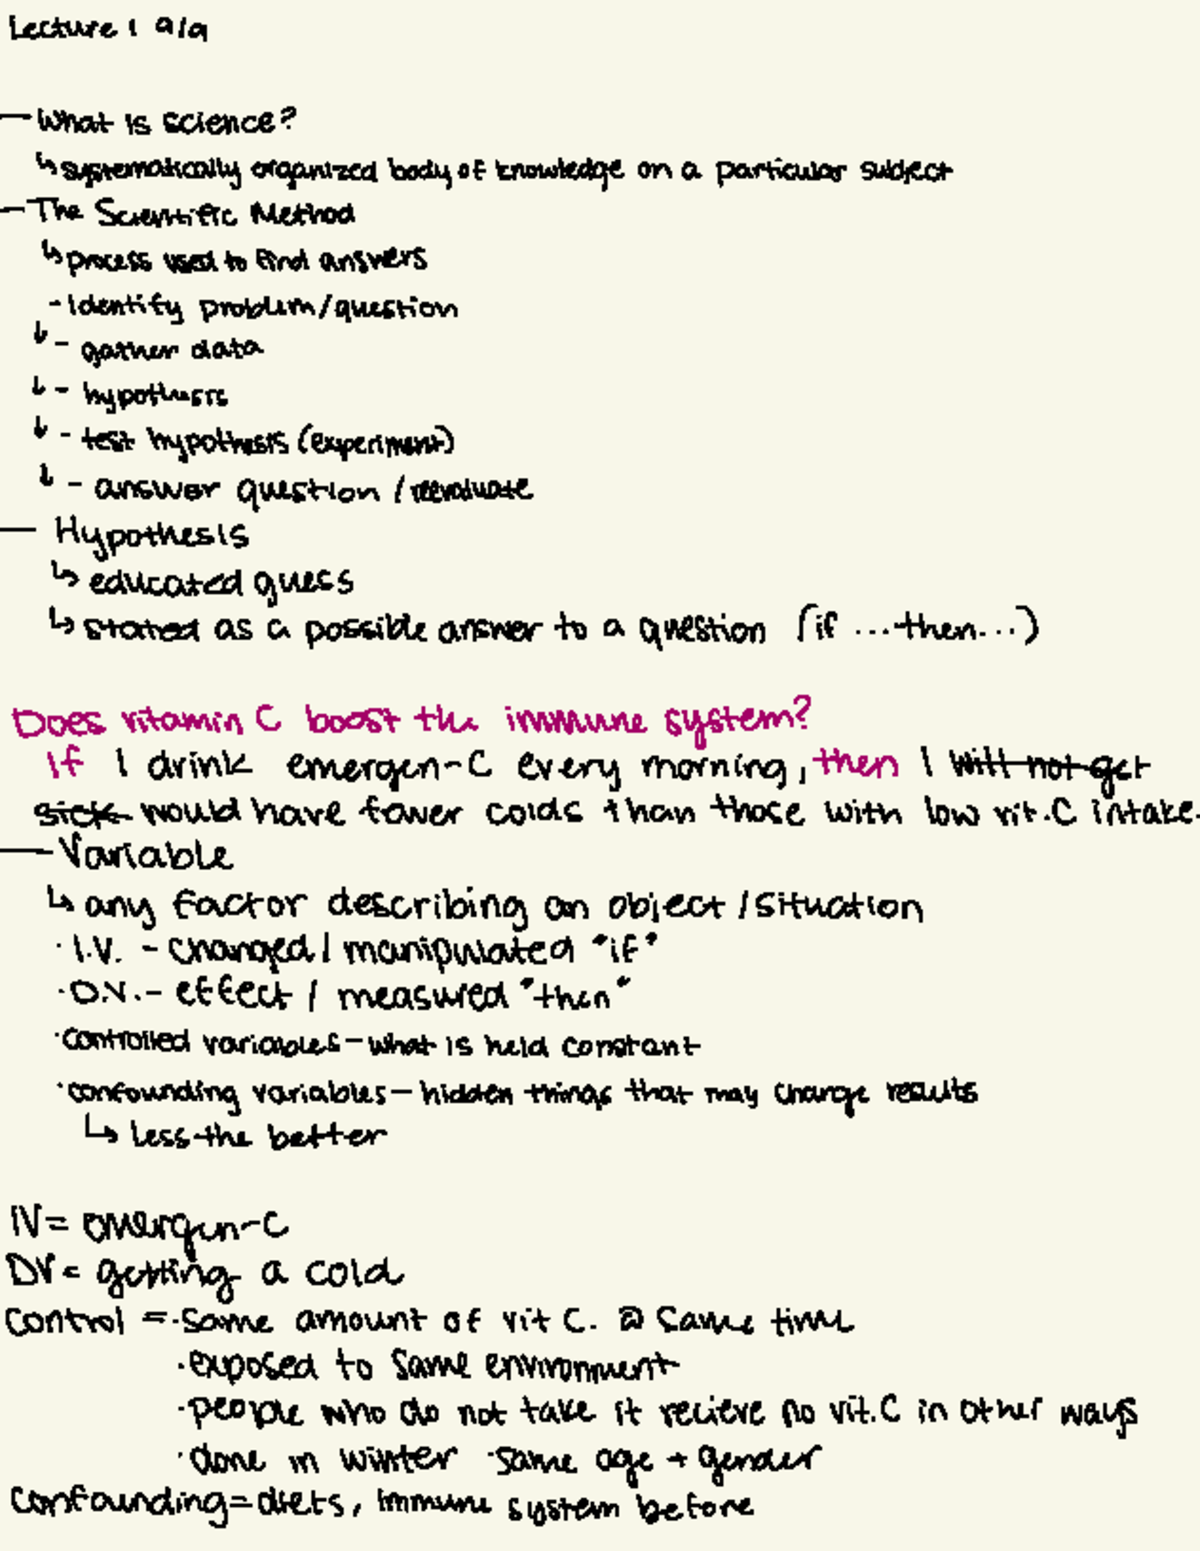 Lecture 1 9/9
— What is science?
↳ systematically organized body of knowledge on a particular subject
— The Scientific Method
↳ process used to find answers
- Identify problem/question
↓ - gather data
↓ - hypothesis
↓ - test hypothesis (experiment)
↓ - answer question / reevaluate
— Hypothesis
↳ educated guess
↳ stated as a possible answer to a question (if ... then...)
Does vitamin C boost the immune system?
If I drink emergen-C every morning, then I will not get
sick would have fewer colds than those with low vit.C intake.
— Variable
↳ any factor describing an object / situation
· I.V. - changed / manipulated "if"
· D.V. - effect / measured "then"
· controlled variables - what is held constant
· confounding variables - hidden things that may change results
↳ less the better
IV = emergen-C
DV = getting a cold
control = · same amount of vit C. @ same time
· exposed to same environment
· people who do not take it recieve no vit.C in other ways
· done in winter · same age + gender
Confounding = diets, immune system before